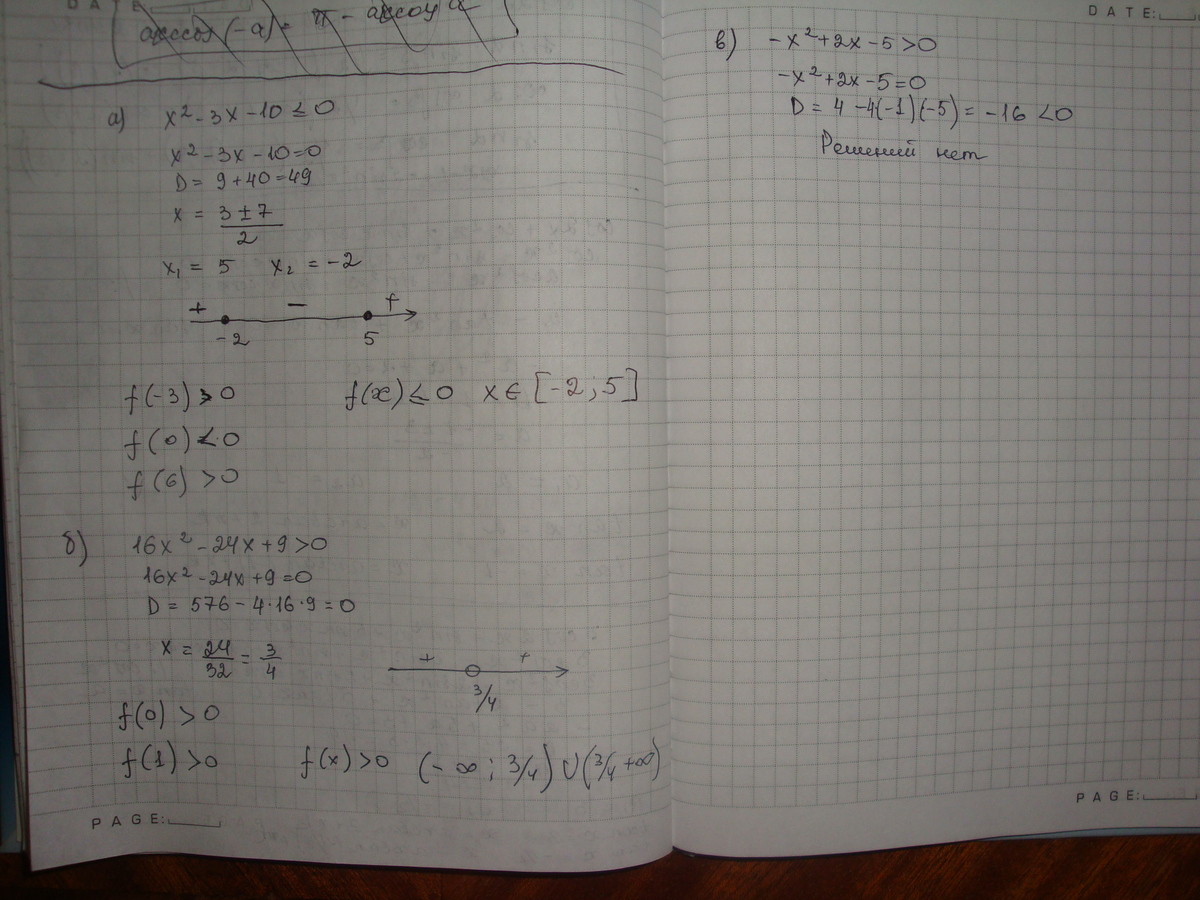 DATE
arccos(-a) = π - arccos a
а) x² - 3x - 10 ≤ 0
x² - 3x - 10 = 0
D = 9 + 40 = 49
x = (3 ± 7)/2
x₁ = 5 x₂ = -2
+ − +
-2 5
f(-3) > 0 f(x) ≤ 0 x ∈ [-2; 5]
f(0) < 0
f(6) > 0
б) 16x² - 24x + 9 > 0
16x² - 24x + 9 = 0
D = 576 - 4·16·9 = 0
x = 24/32 = 3/4
+ +
3/4
f(0) > 0
f(1) > 0 f(x) > 0 (-∞; 3/4) ∪ (3/4 +∞)
PAGE:
DATE:
в) -x² + 2x - 5 > 0
-x² + 2x - 5 = 0
D = 4 - 4(-1)(-5) = -16 < 0
Решений нет
PAGE: